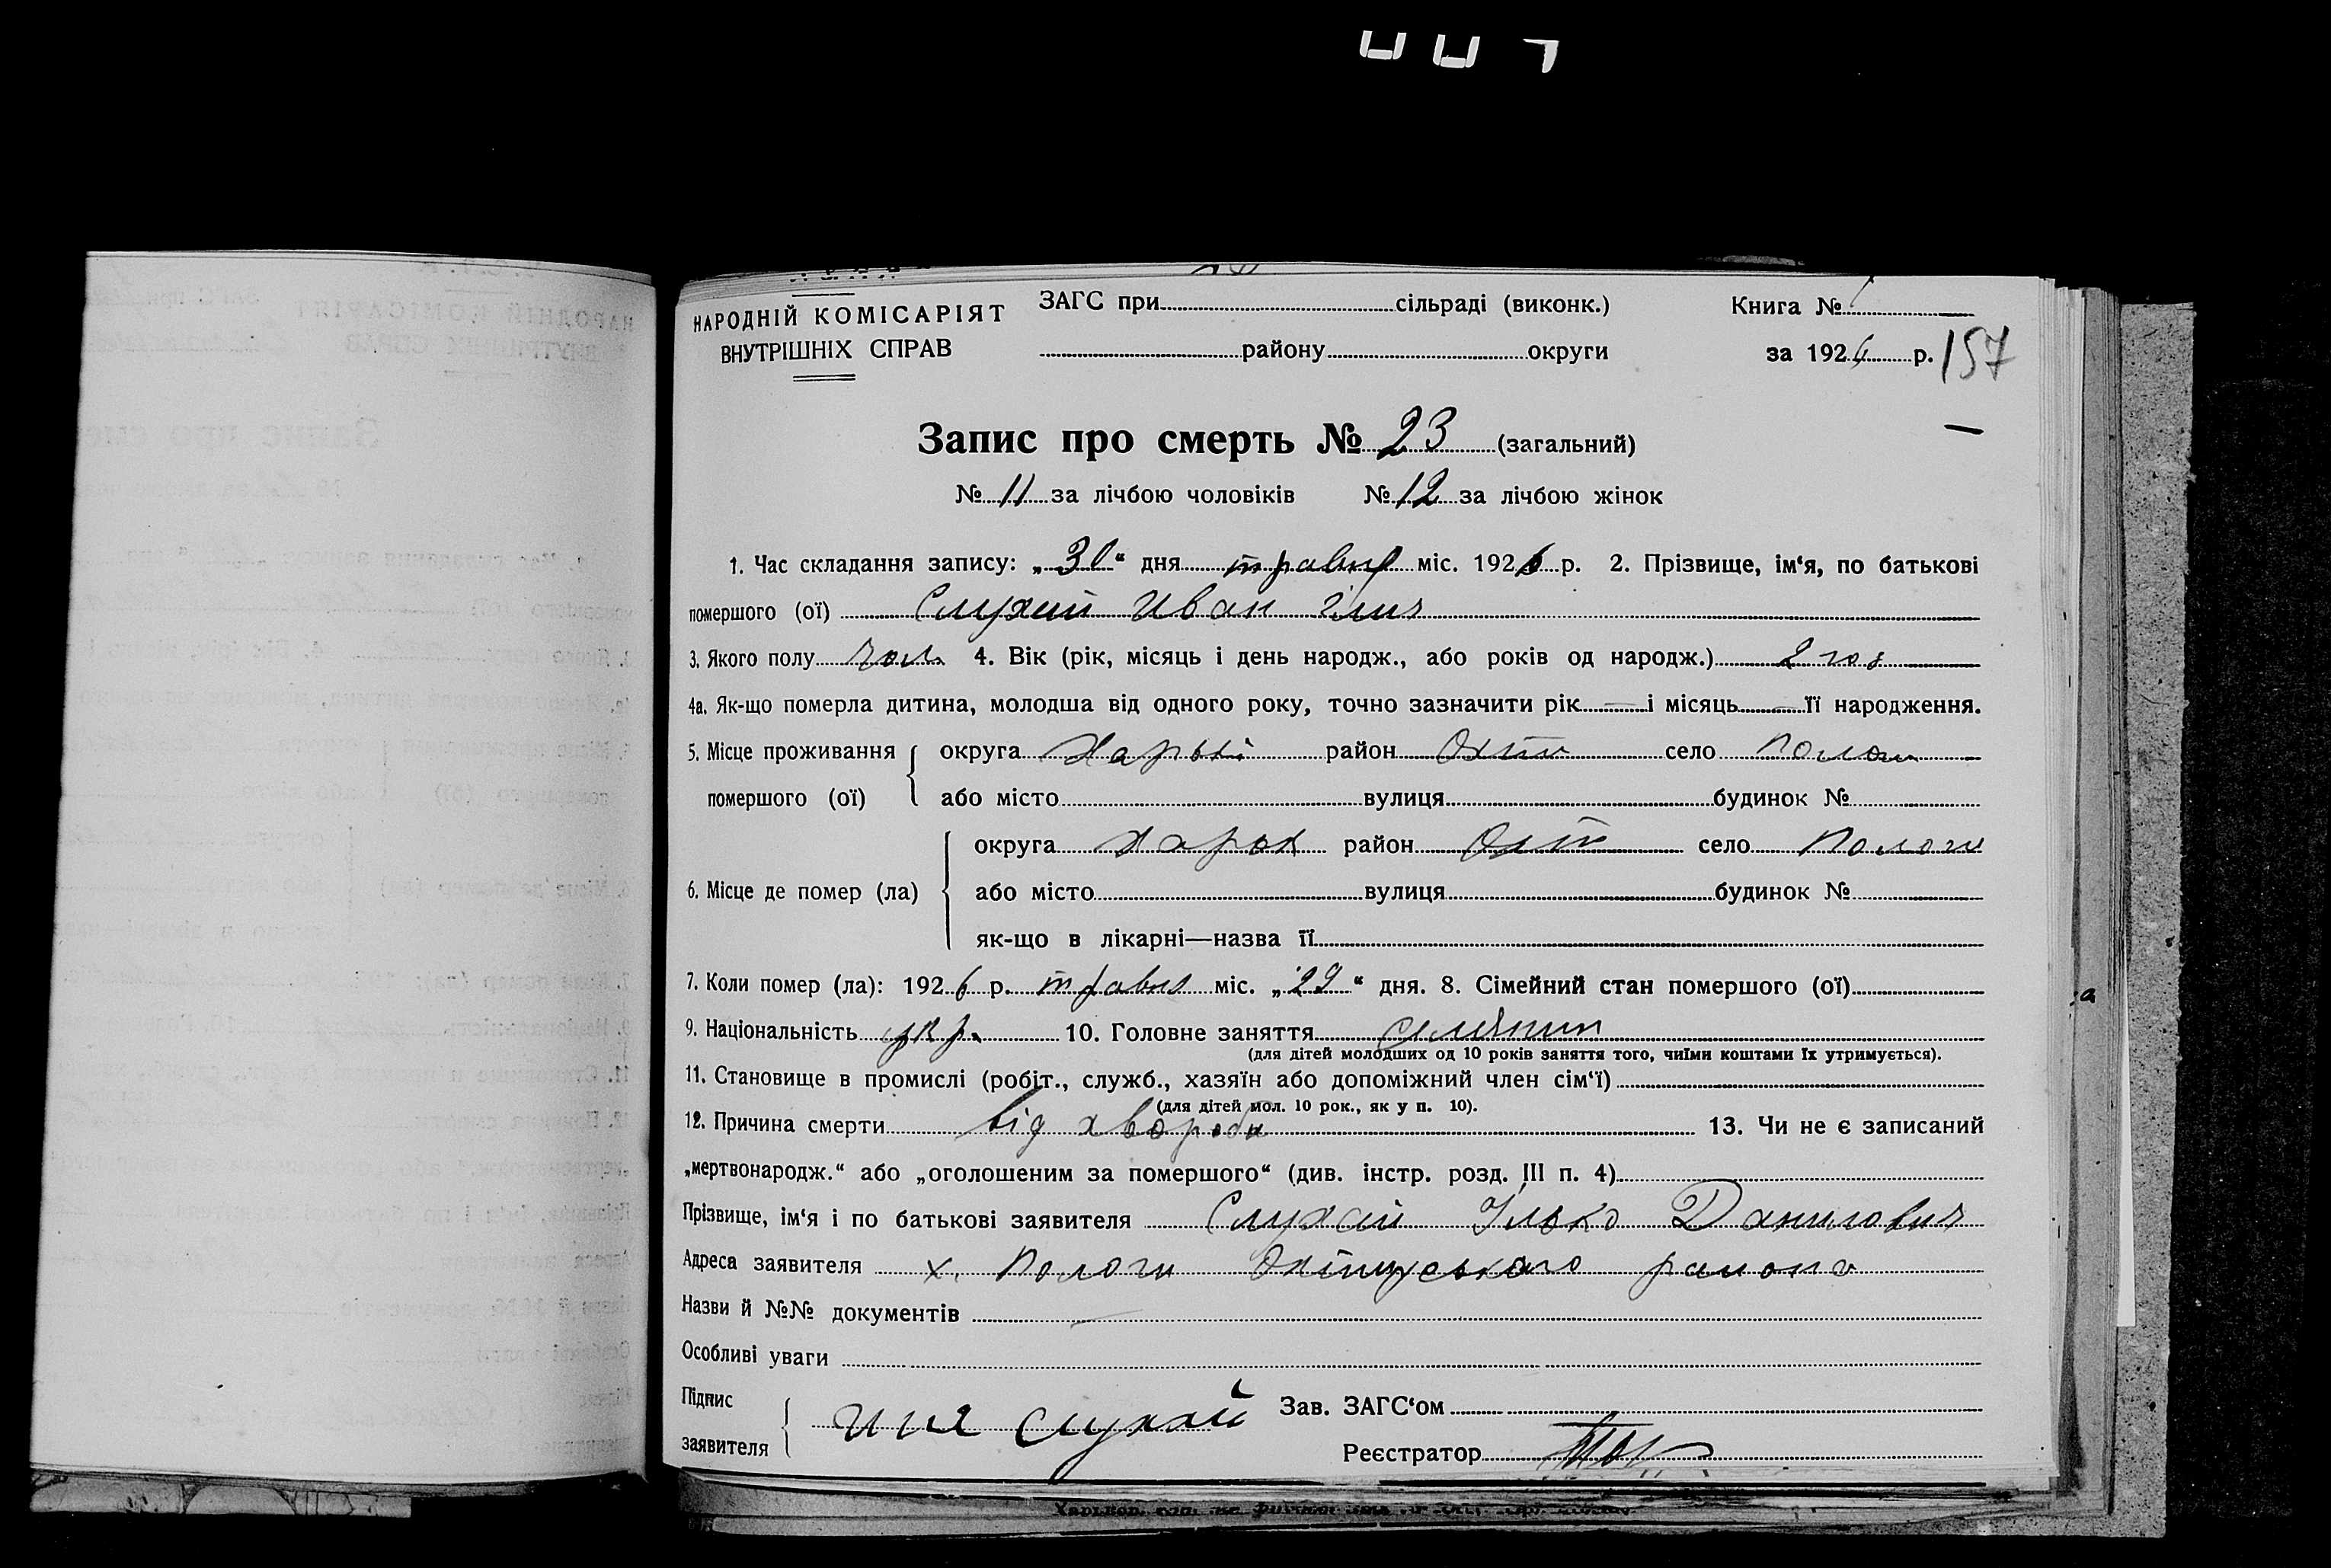 НАРОДНІЙ КОМІСАРІЯТ
ВНУТРІШНІХ СПРАВ
ЗАГС при сільраді (виконк.)
району округи
Книга №
за 1926 р. 157
Запис про смерть № 23 (загальний)
№ 11 за лічбою чоловіків № 12 за лічбою жінок
1. Час складання запису: „30“ дня травня міс. 1926 р. 2. Прізвище, ім‘я, по батькові
помершого (ої) Слухай Иван Ілич
3. Якого полу чол. 4. Вік (рік, місяць і день народж., або років од народж.) 2 год
4а. Як-що померла дитина, молодша від одного року, точно зазначити рік — і місяць — її народження.
5. Місце проживання помершого (ої)
округа район Охт село Полог
або місто вулиця будинок №
6. Місце де помер (ла)
округа Харьк район Охт село Пологи
або місто вулиця будинок №
як-що в лікарні—назва її
7. Коли помер (ла): 1926 р. травня міс. „29“ дня. 8. Сімейний стан помершого (ої)
9. Національність укр. 10. Головне заняття селянин
(для дітей молодших од 10 років заняття того, чиїми коштами їх утримується).
11. Становище в промислі (робіт., служб., хазяїн або допоміжний член сім‘ї)
(для дітей мол. 10 рок., як у п. 10).
12. Причина смерти від хвороби 13. Чи не є записаний
„мертвонародж.“ або „оголошеним за помершого“ (див. інстр. розд. III п. 4)
Прізвище, ім‘я і по батькові заявителя Слухай Ілько Данилович
Адреса заявителя х. Пологи Охтирського района
Назви й №№ документів
Особливі уваги
Підпис заявителя Слухай
Зав. ЗАГС‘ом
Реєстратор